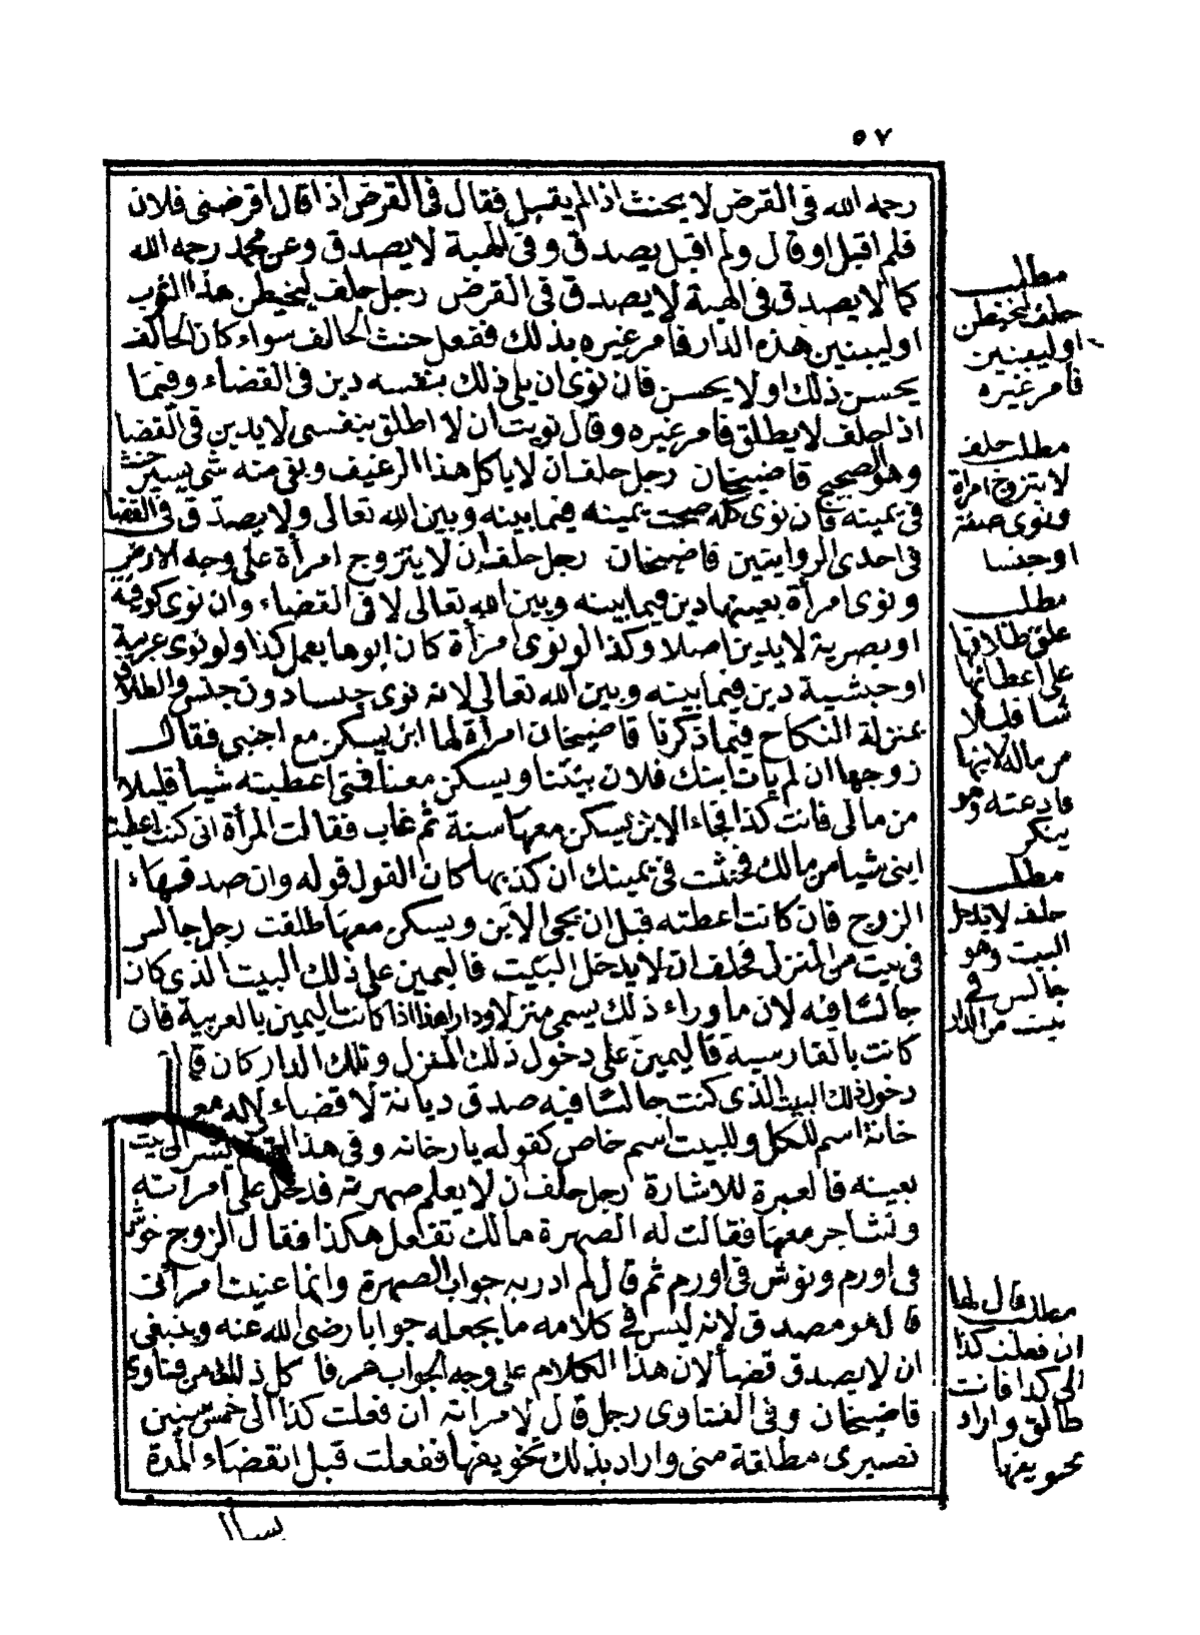 ٥٧
رحمه الله فى القرض لا يحنث اذا لم يقبل فقال فى القرض اذا قال اقرضنى فلان
فلم اقبل او قال ولم اقبل يصدق وفى الهبة لا يصدق وعن محمد رحمه الله
كما لا يصدق فى الهبة لا يصدق فى القرض رجل حلف ليخيطن هذا الثوب
او ليبنين هذه الدار فامر غيره بذلك ففعل حنث الحالف سواء كان الحالف
يحسن ذلك او لا يحسن فان نوى ان يلى ذلك بنفسه دين فى القضاء وفيما
اذا حلف لا يطلق فامر غيره وقال نويت ان لا اطلق بنفسى لا يدين فى القضا
وهو الصحيح قاضيخان رجل حلف ان لا ياكل هذا الرغيف وبقى منه شى يسير حنث
فى يمينه فان نوى كله صحت يمينه فيما بينه وبين الله تعالى ولا يصدق فى القضا
فى احدى الروايتين قاضيخان رجل حلف ان لا يتزوج امرأة على وجه الارض
ونوى امرأة بعينها دين فيما بينه وبين الله تعالى لا فى القضاء وان نوى كوفية
او بصرية لا يدين اصلا وكذا لو نوى امرأة كان ابوها يعمل كذا ولو نوى عربية
او حبشية دين فيما بينه وبين الله تعالى لانه نوى جنسا دون جنس والطلاق
بمنزلة النكاح فيما ذكرنا قاضيخان امرأة لها ابن يسكن مع اجنبى فقال
زوجها ان لم يات ابنك فلان بيتنا ويسكن معنا فمتى اعطيته شيا قليلا
من مالى فانت كذا فجاء الابن يسكن معها سنة ثم غاب فقالت المرأة انى كنت اعطيت
ابنى شيا من مالك فحنثت فى يمينك ان كذبها كان القول قوله وان صدقها
الزوج فان كانت اعطته قبل ان يجى الابن ويسكن معها طلقت رجل جالس
فى بيت من المنزل فحلف ان لا يدخل البيت فاليمين على ذلك البيت الذى كان
جالسا فيه لان ما وراء ذلك يسمى منزلا ودارا هذا اذا كانت اليمين بالعربية فان
كانت بالفارسية فاليمين على دخول ذلك المنزل وتلك الدار كان قال
دخول ذلك البيت الذى كنت جالسا فيه صدق ديانة لا قضاء
خانة اسم للكل وللبيت اسم خاص كقوله يارخانه وفى هذا بيت
بعينه فالعبرة للاشارة رجل حلف ان لا يعلم صهرته فدخل على امراته
وتشاجر معها فقالت له الصهرة مالك تفعل هكذا فقال الزوج خوش
فى اورم ونوش فى اورم ثم قال لم ادر به جواب الصهرة وانما عنيت امراتى
قال هو مصدق لانه ليس فى كلامه ما يجعله جوابا رضى الله عنه وينبغى
ان لا يصدق قضأ لان هذا الكلام على وجه الجواب كل ذلك من فتاوى
قاضيخان وفى الفتاوى رجل قال لامراته ان فعلت كذا الى خمس سنين
تصيرى مطلقة منى واراد بذلك تخويفها ففعلت قبل انقضاء المدة
يسأل
مطلب
حلف ليخيطن
او ليبنين
فامر غيره
مطلب حلف
لا يتزوج امراة
ونوى صفة
او جنسا
مطلب
علق طلاقها
على اعطائها
شيا قليلا
من ماله لابنها
فادعته وهو
ينكر
مطلب
حلف لا يدخل
البيت وهو
جالس فى
بيت من الدار
مطلب قال لها
ان فعلت كذا
الى كذا فانت
طالق واراد
تخويفها